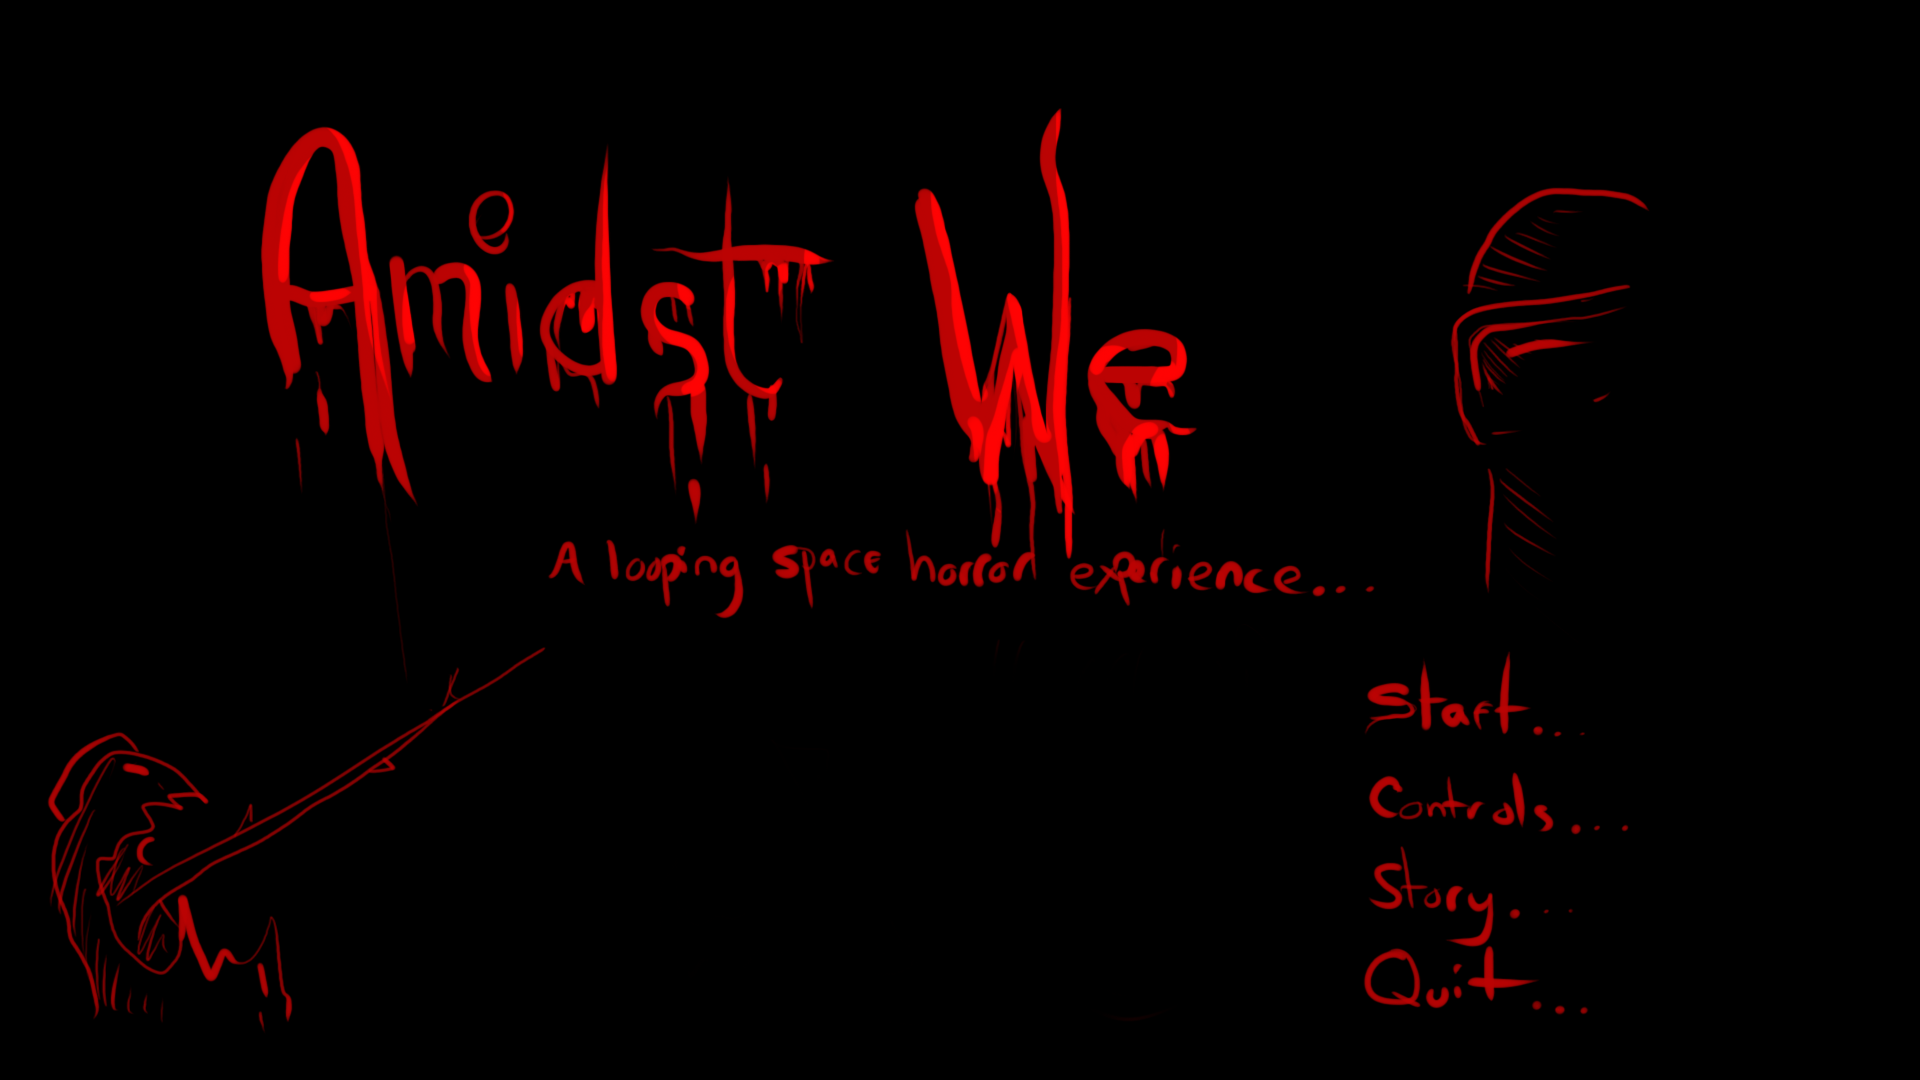 Amidst We
A looping space horror experience...
Start...
Controls...
Story...
Quit...